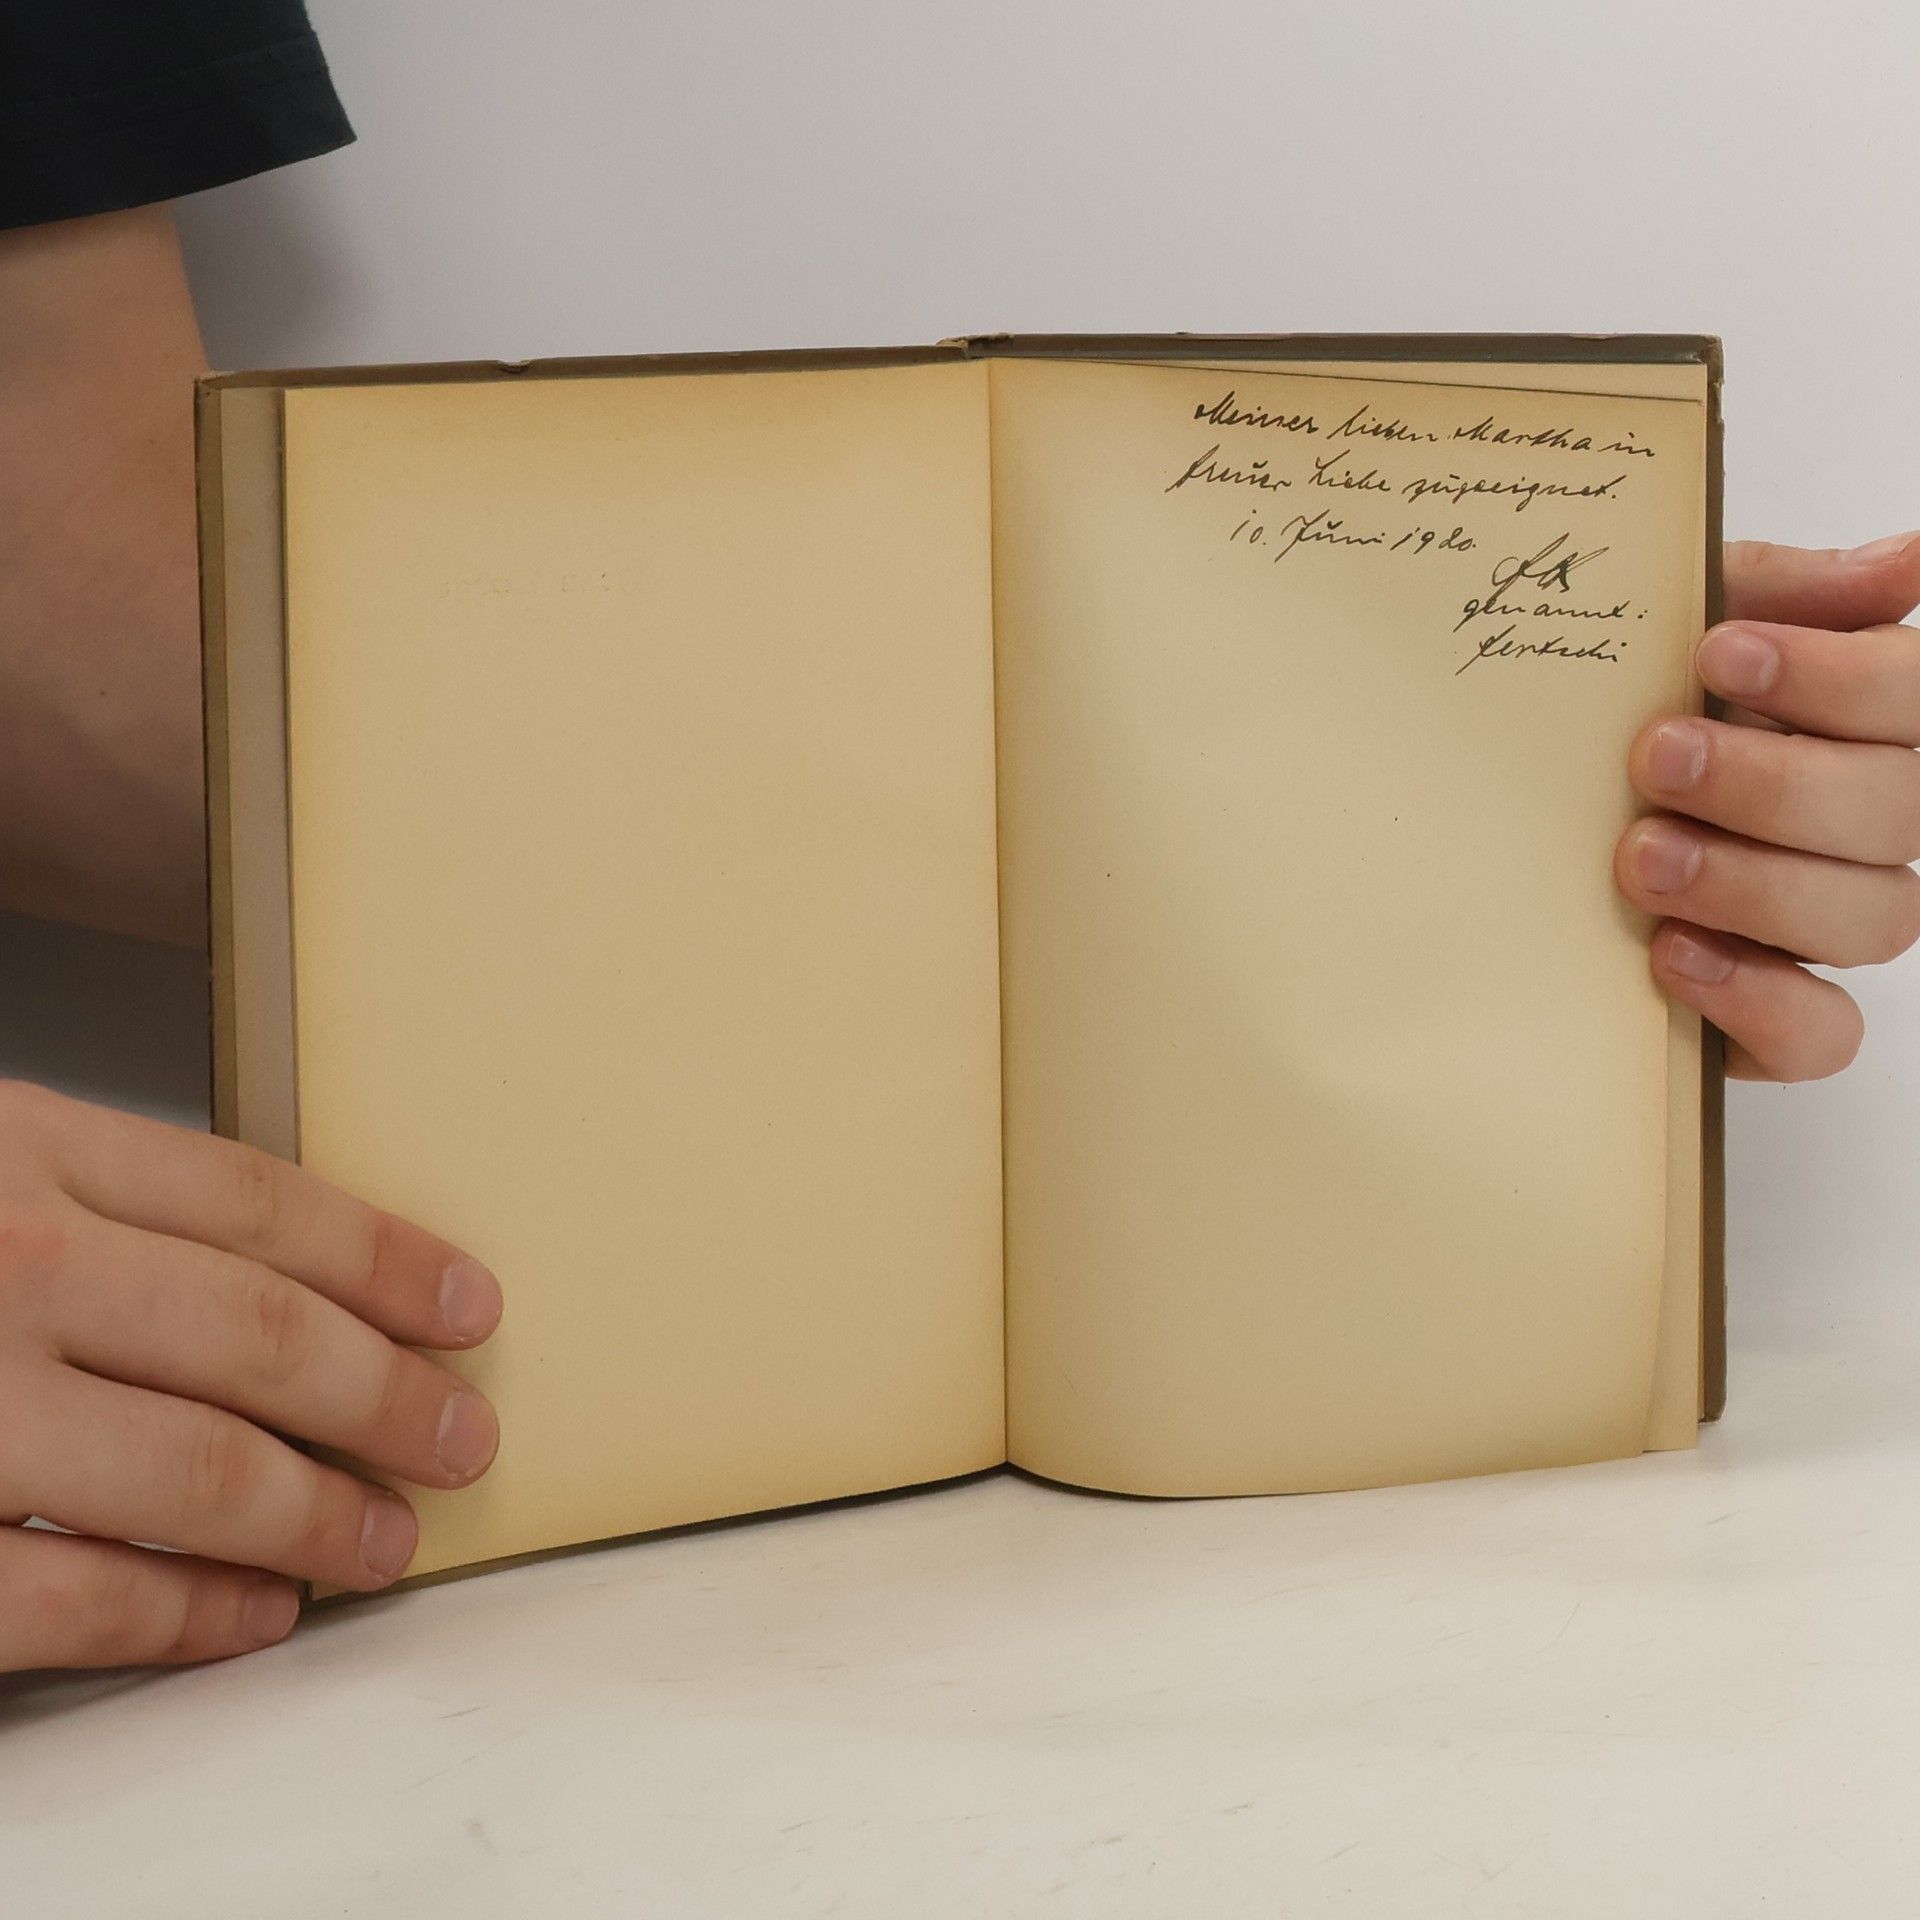 Meiner lieben Martha in
treuer Liebe zugeeignet.
10. Juni 1920.
genannt:
fertschi